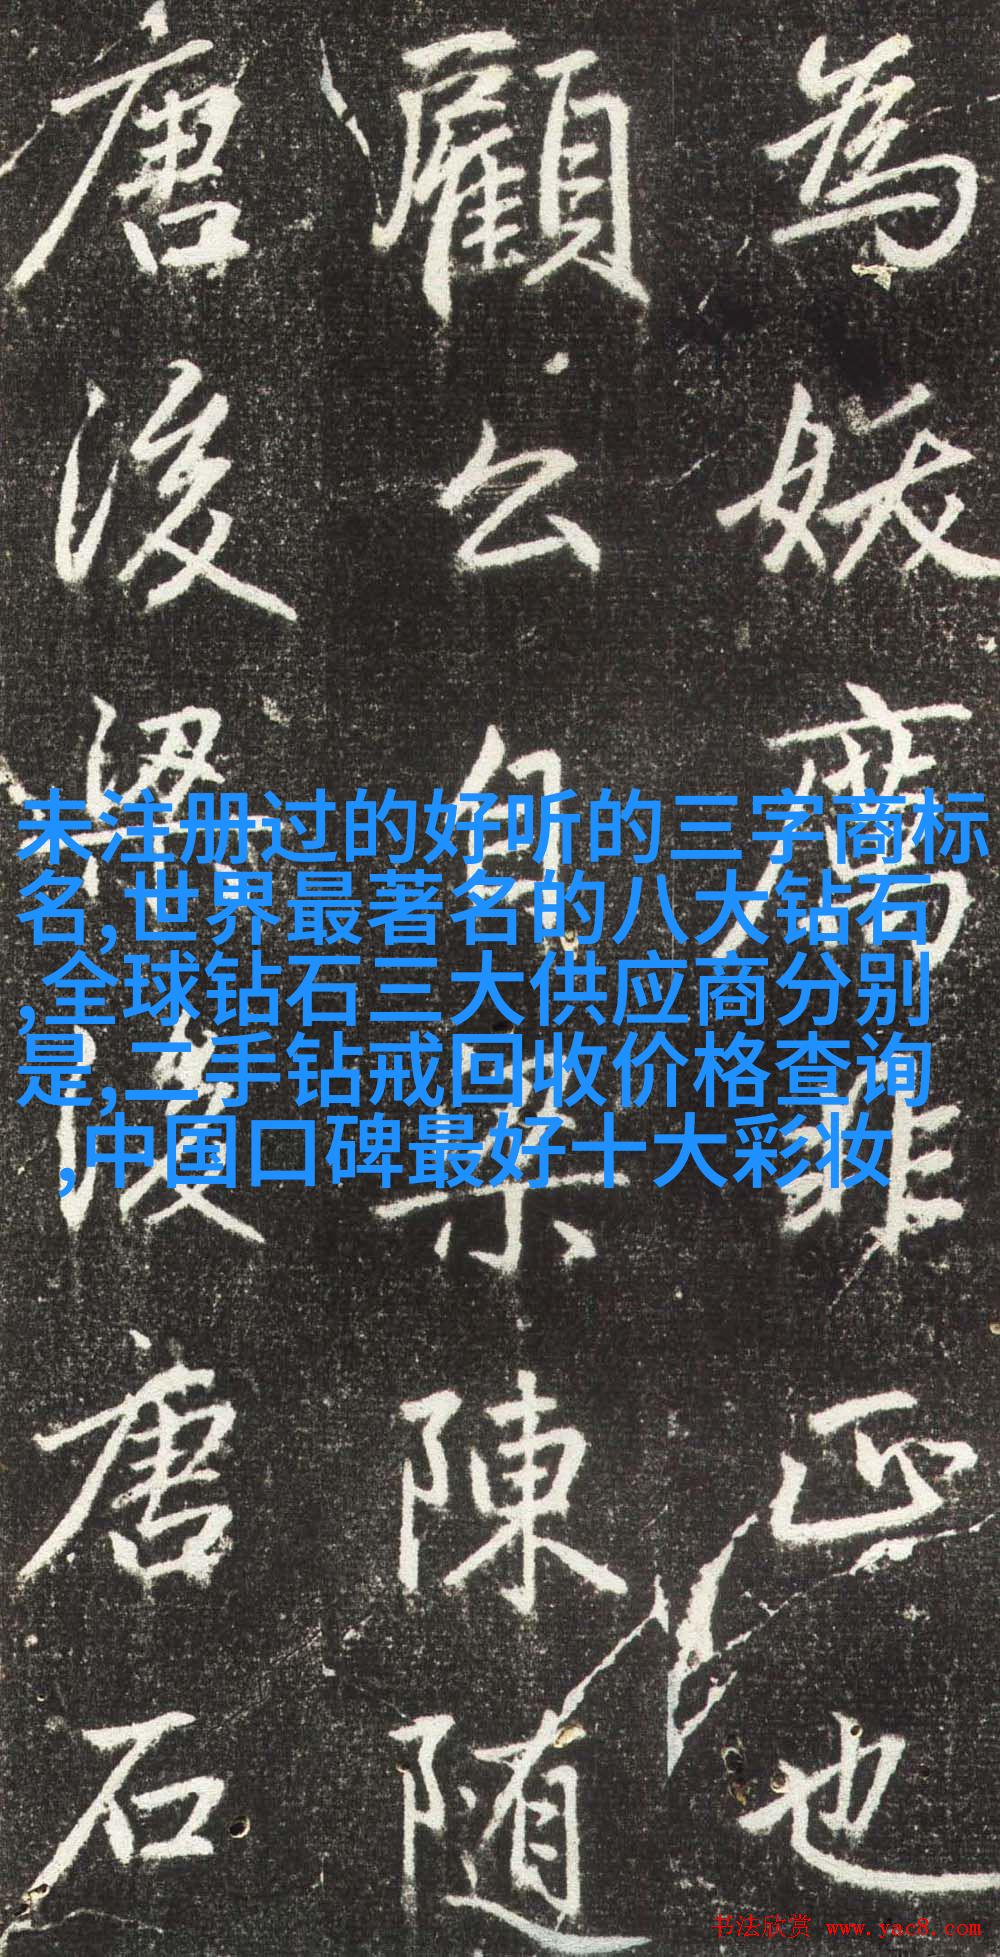 為妖非正也
顧公自梁陳隨
唐後梁後唐石
未注册过的好听的三字商标
名,世界最著名的八大钻石
,全球钻石三大供应商分别
是,二手钻戒回收价格查询
,中国口碑最好十大彩妆
书法欣赏 www.yac8.com